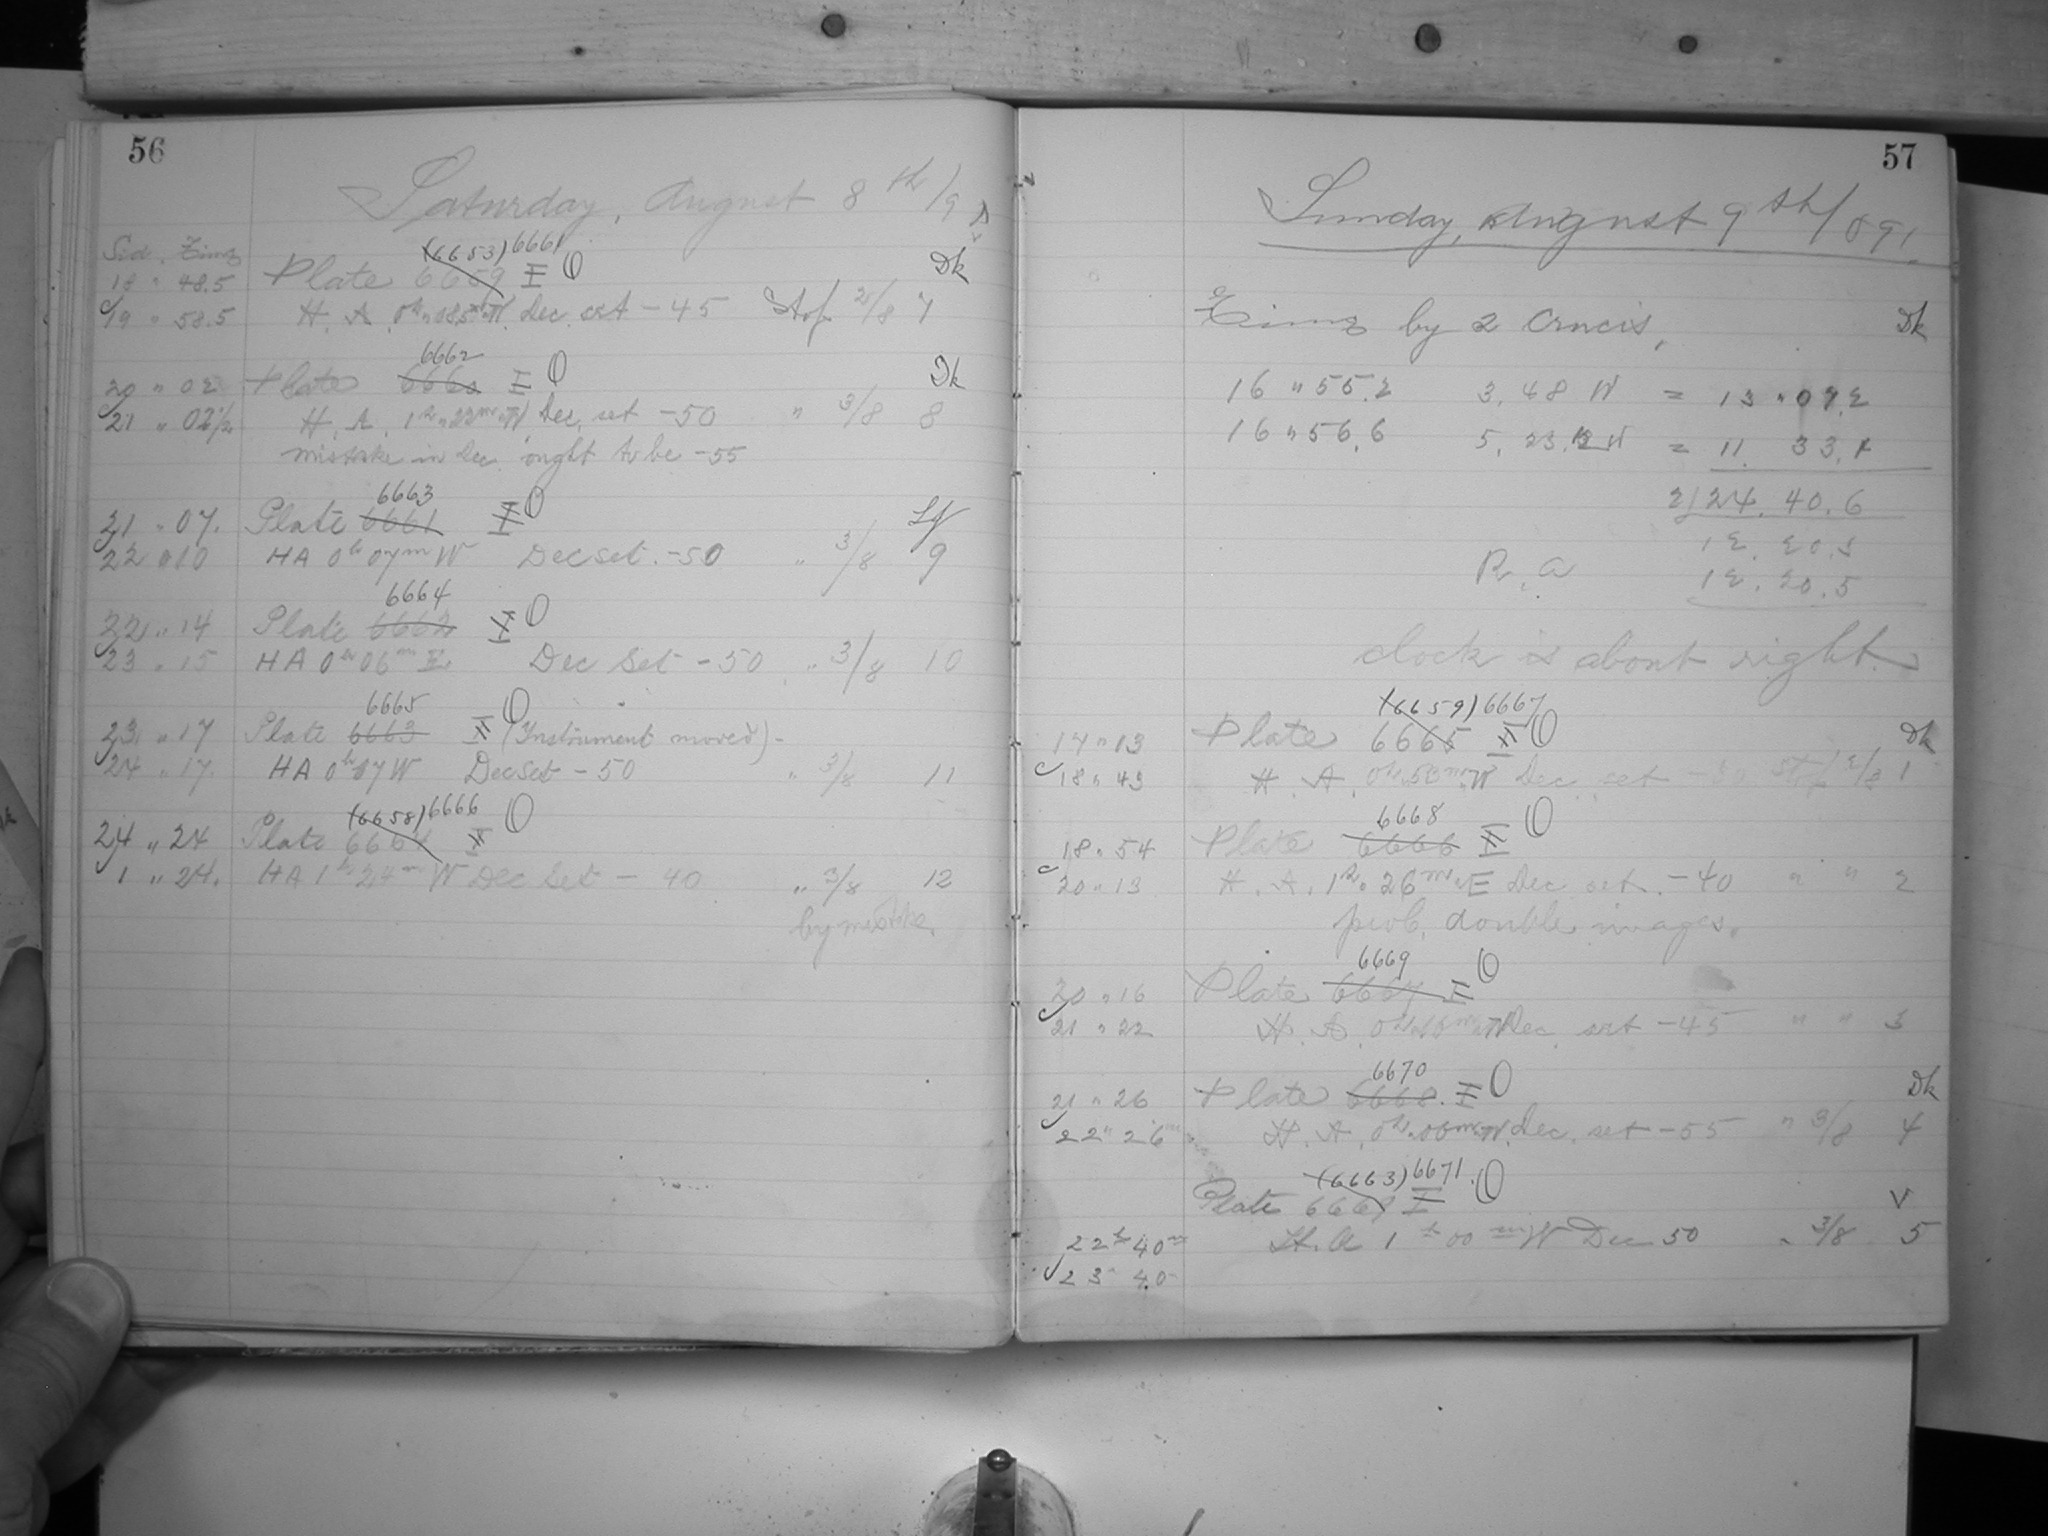 56
Saturday, August 8th/9
Sid. Time
(6653) 6661
18 " 48.5 Plate 6659 I O Dk
19 " 58.5 H. A. 0h 08.5m W. Dec. set -45 Stop 2/8 7
6662
20 " 02 Plate 6660 I O Dk
21 " 02 1/2 H. A. 1h 22m W. Dec. set -50 " 3/8 8
mistake in Dec. ought to be -55
6663
21 " 07. Plate 6661 I O
22 " 10 HA 0h 07m W Dec set. -50 " 3/8 9
6664
22 " 14 Plate 6662 I O
23 " 15 HA 0h 06m E. Dec Set -50 " 3/8 10
6665
23 " 17 Plate 6663 I O (Instrument moved) -
24 " 17. HA 0h 07 W Dec Set -50 " 3/8 11
(6658) 6666
24 " 24 Plate 6664 I O
1 " 24. HA 1h 24m W Dec Set - 40 " 3/8 12
by mistake.
57
Sunday, August 9th/891.
Time by 2 Crucis, Dk
16 " 55.2 3. 48 W = 13 " 07.2
16 " 56.6 5. 23. W = 11. 33.4
2) 24. 40. 6
12. 20.3
R. A 12. 20.5
clock is about right.
(6659) 6667
17 " 13 Plate 6665 I O Dk
18 " 43 H. A. 0h 50m W Dec. set Stop 2/8 1
6668
18 " 54 Plate 6666 I O
20 " 13 H. A. 1h 26m E Dec. set. -40 " " 2
prob. double images.
6669
20 " 16 Plate 6667 I O
21 " 22 H. A. Dec. set -45 " " 3
6670
21 " 26 Plate 6668. I O Dk
22 " 26m H. A. 0h 06m W. Dec. set -55 " 3/8 4
(6663) 6671. O
Plate 6669 I V
22h 40m H. A 1h 00m W Dec 50 " 3/8 5
23 40